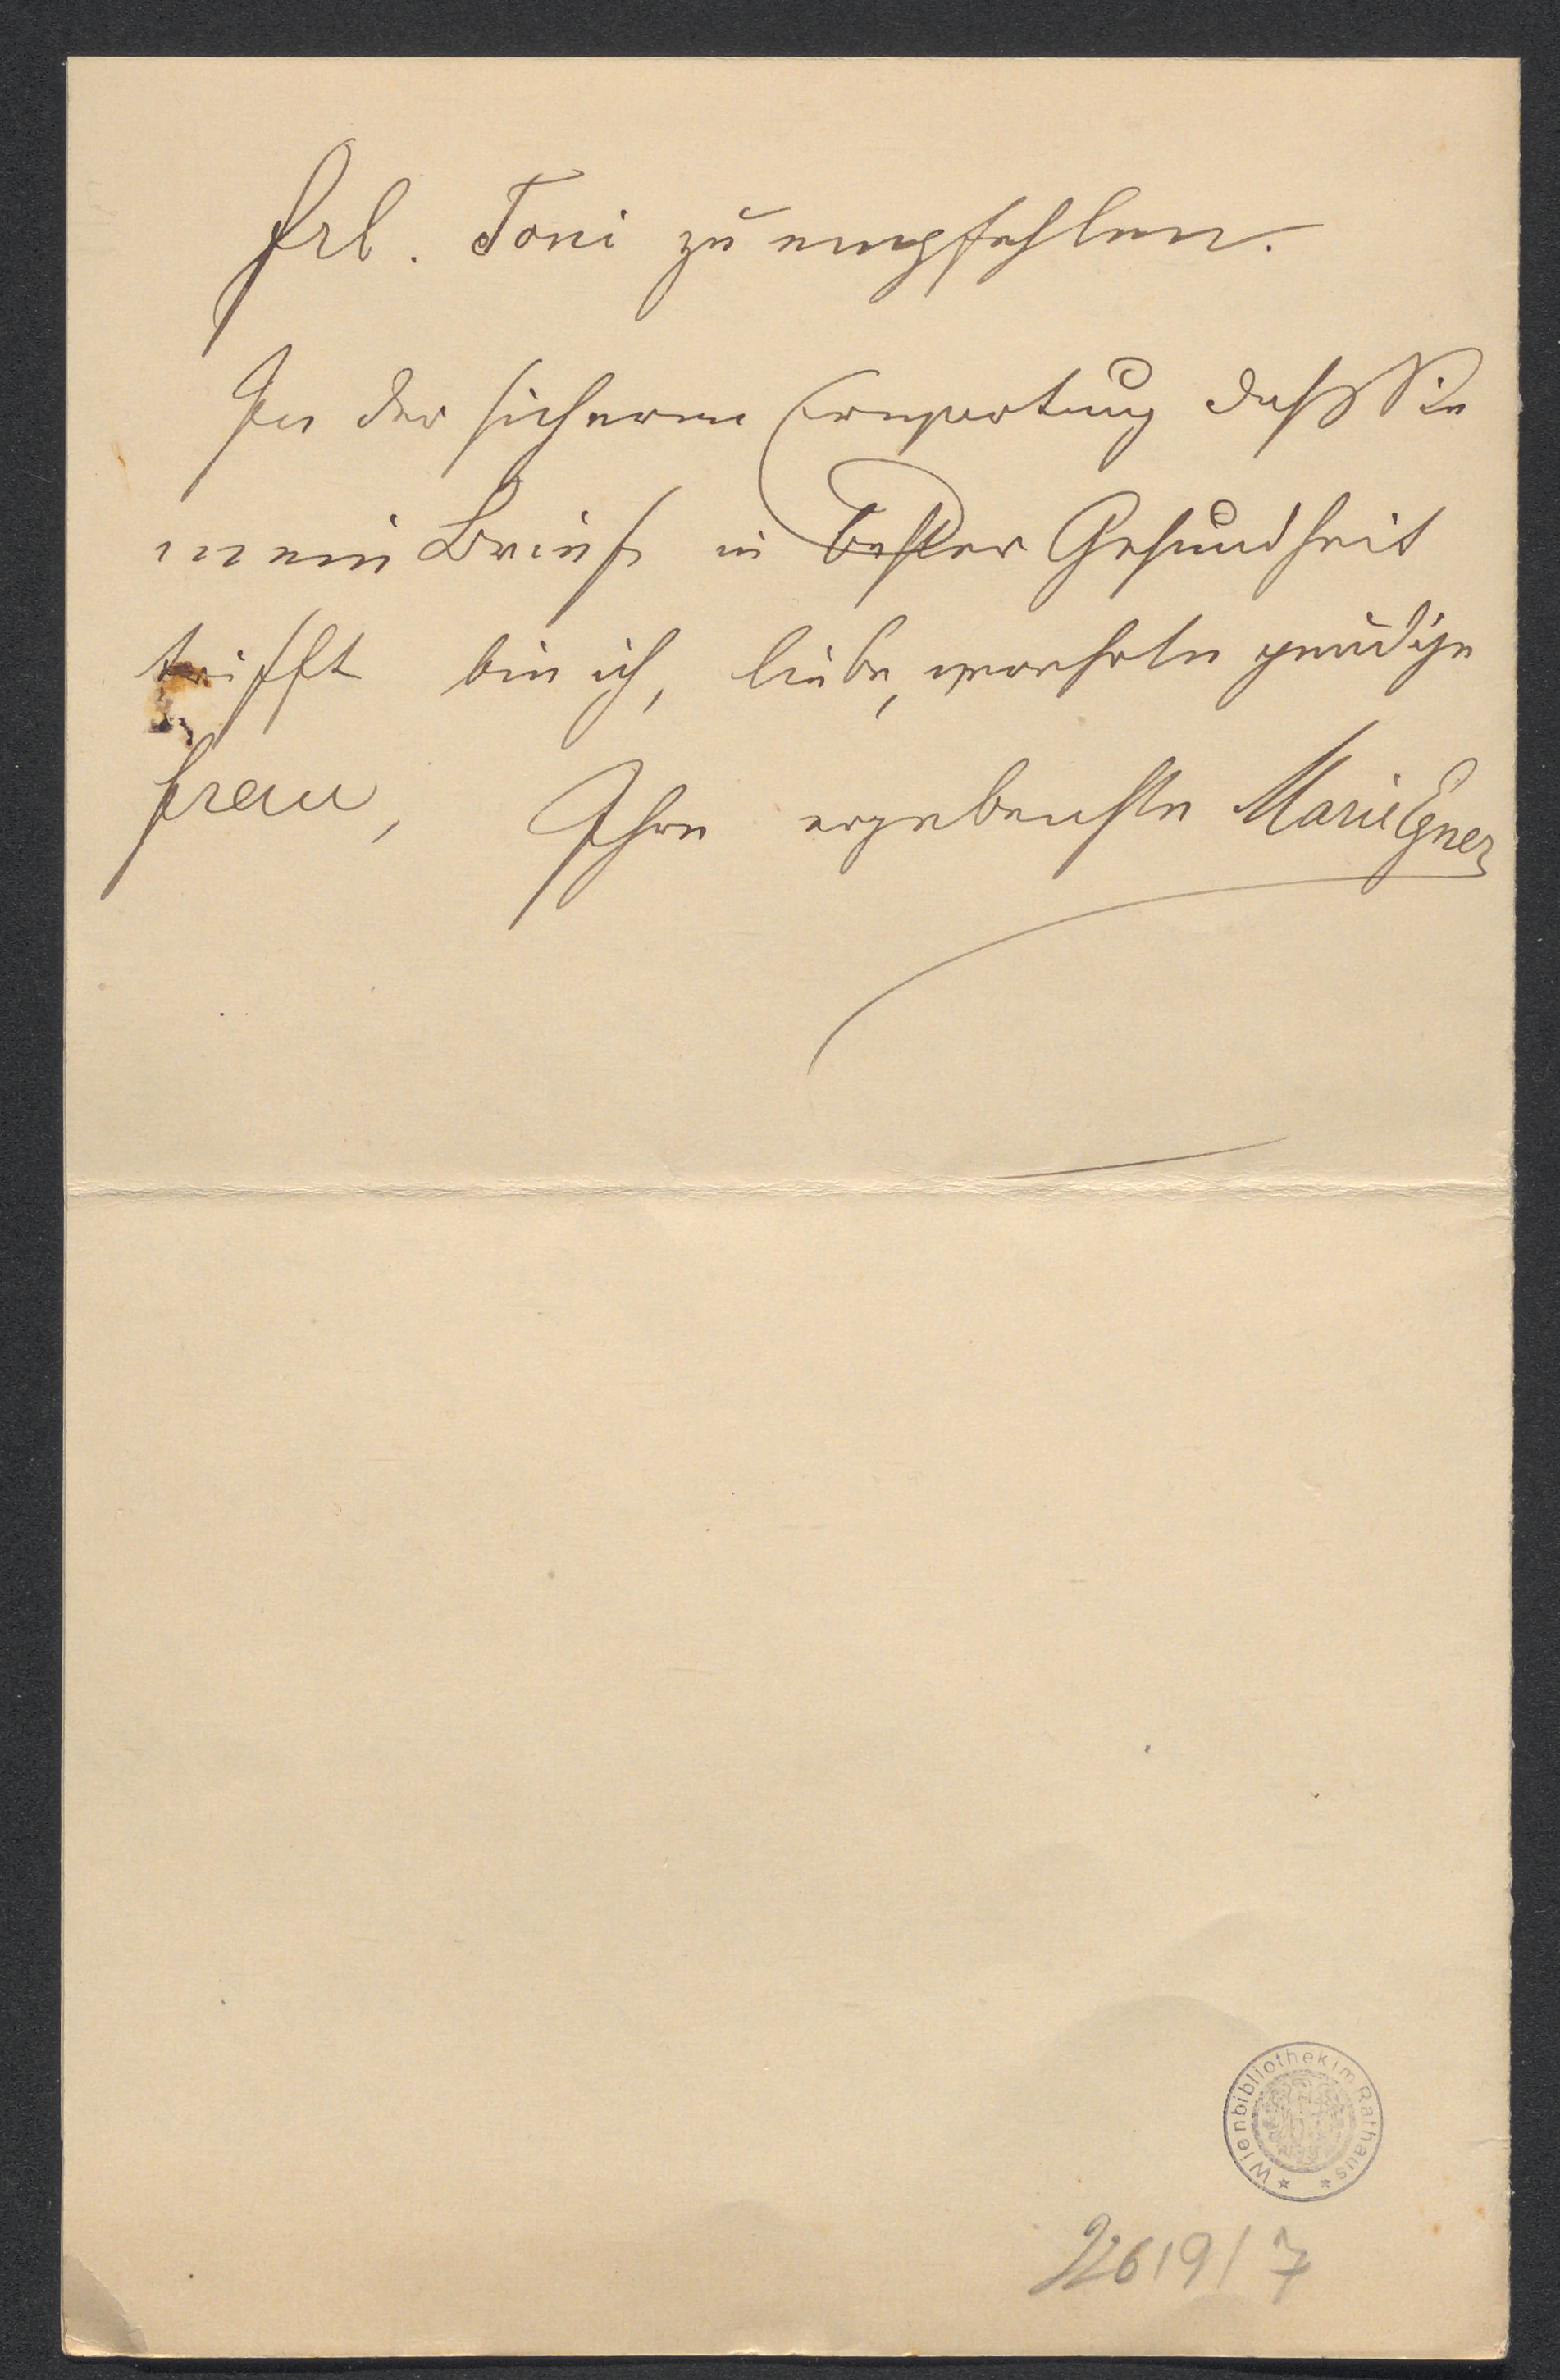 Frl. Toni zu empfehlen.
In der sicheren Erwartung daß Sie
mein Brief in bester Gesundheit
trifft bin ich, liebe, verehrte gnädige
Frau, Ihre ergebenste Marie Egner
Wienbibliothek im Rathaus
2619/7